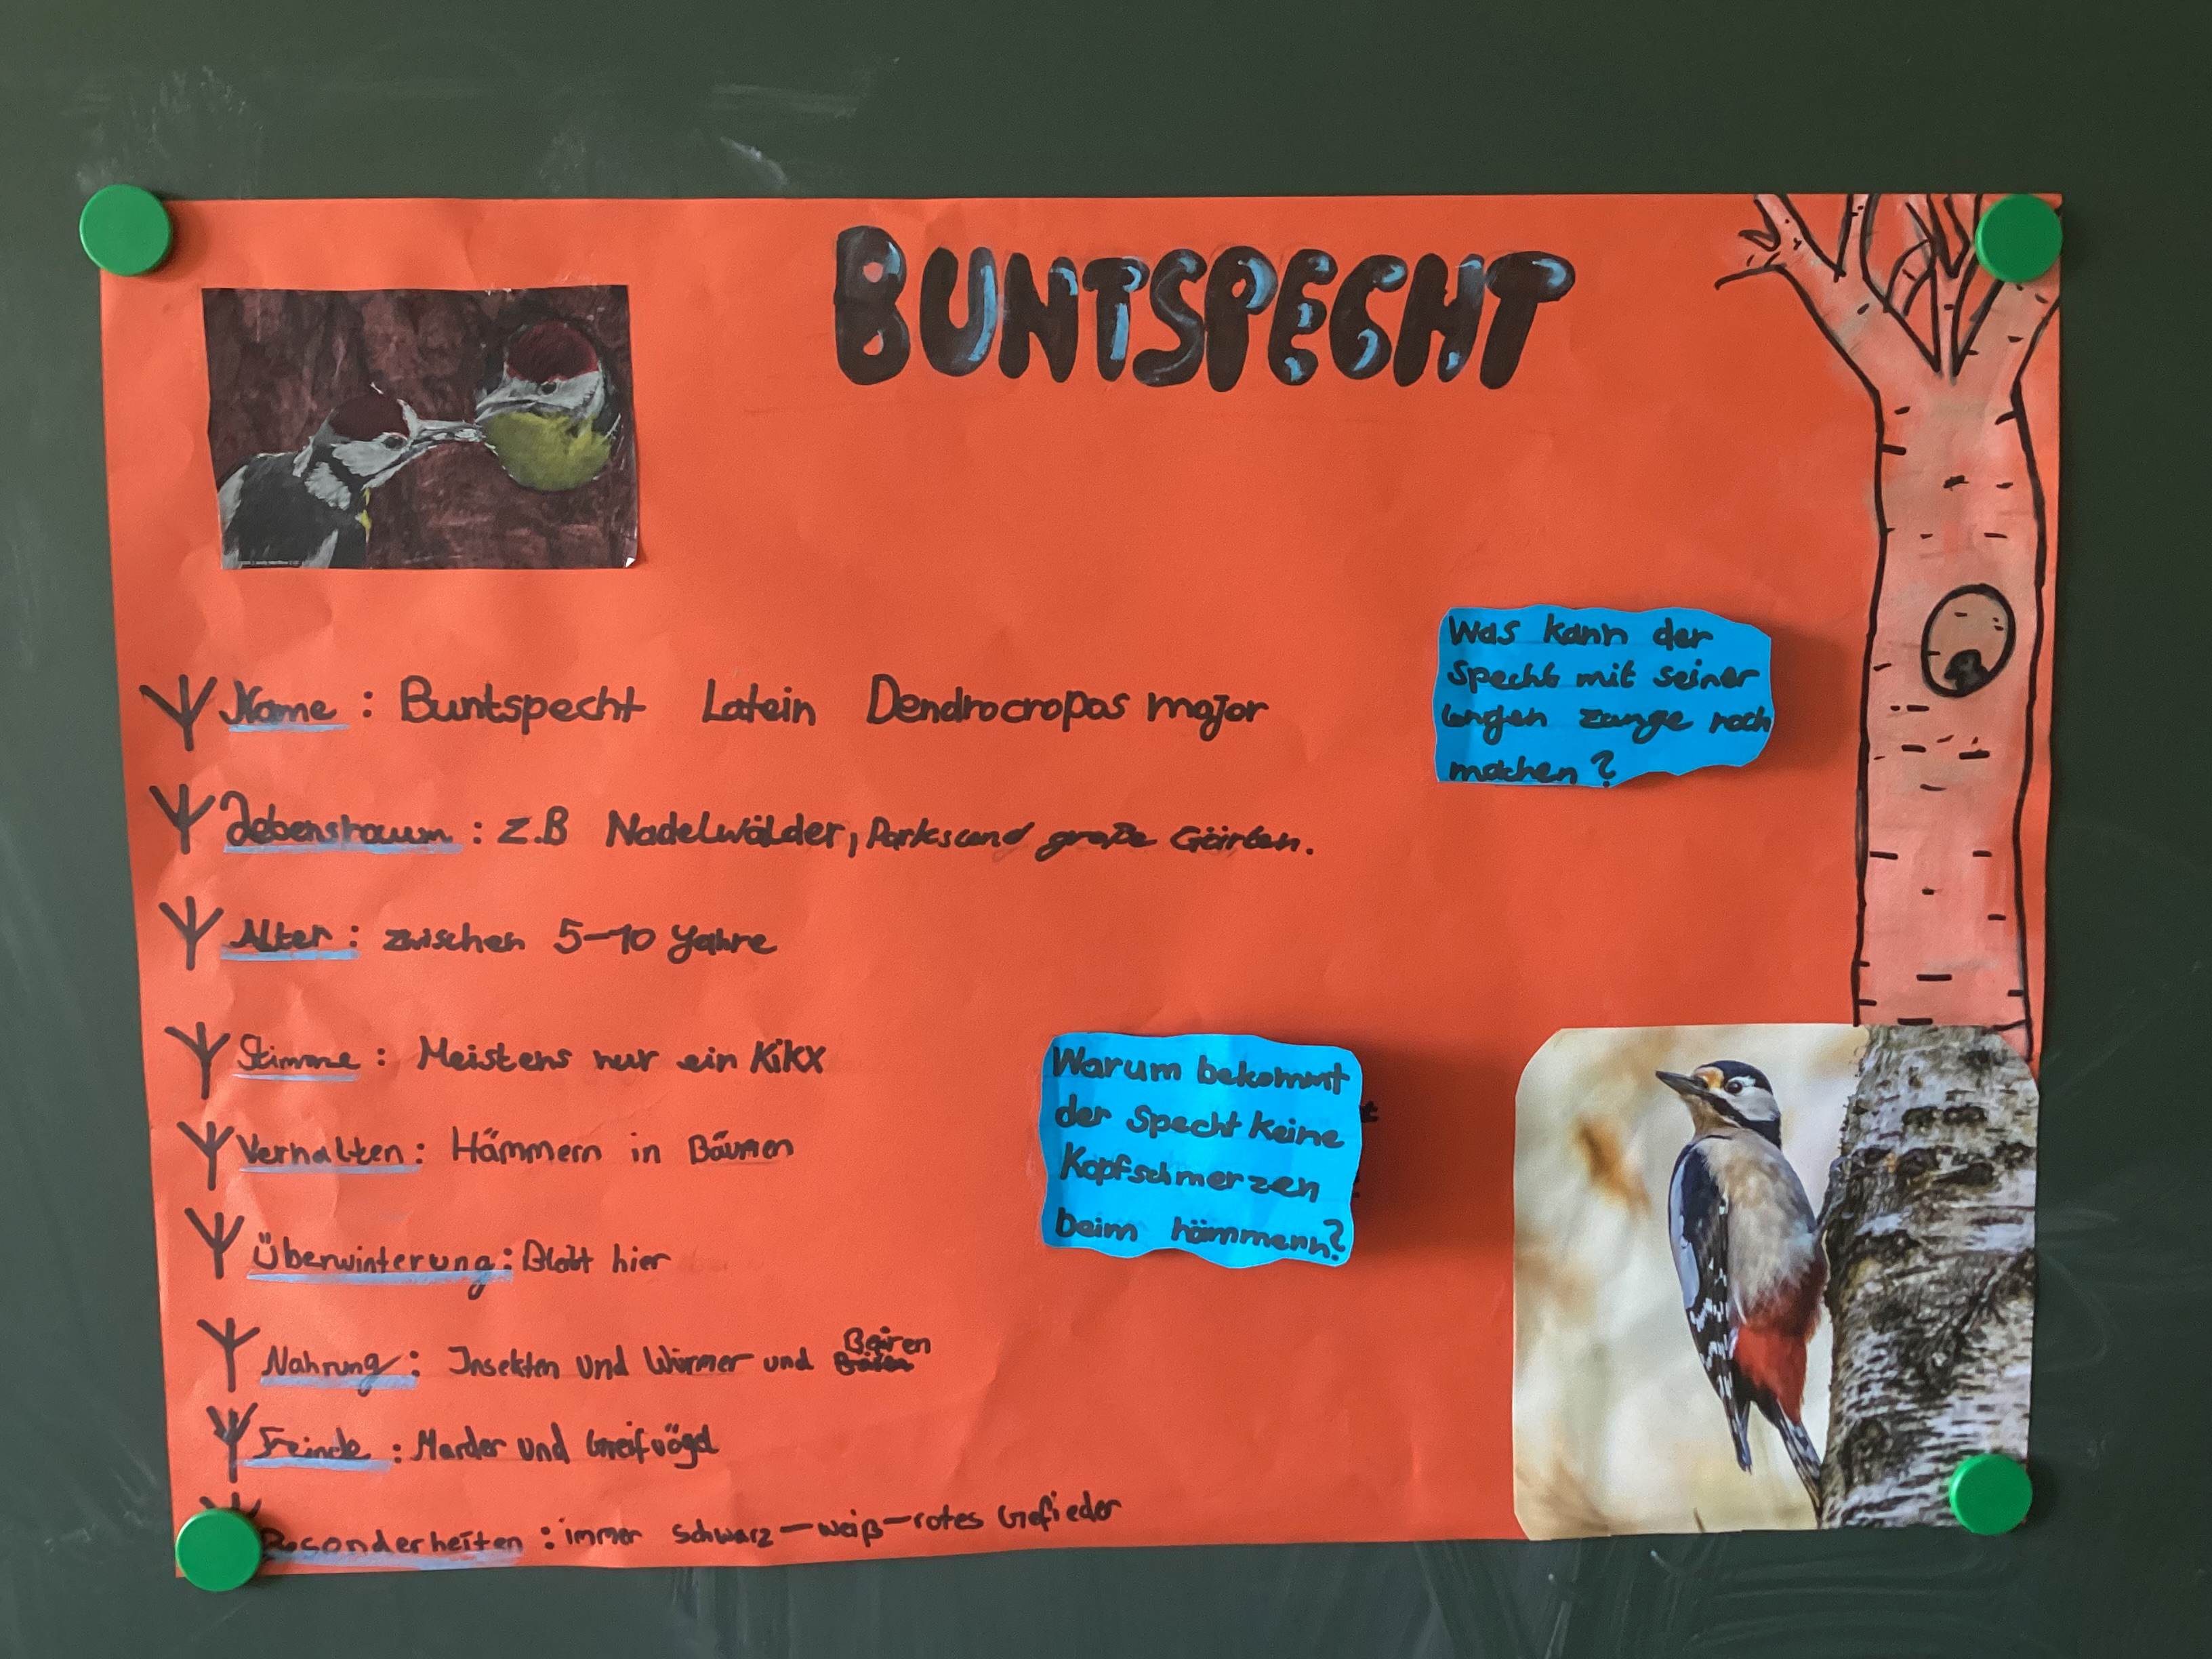 BUNTSPECHT
Name: Buntspecht Latein Dendrocropos major
Lebensraum: z.B Nadelwälder, Parks und große Gärten.
Alter: zwischen 5-10 Jahre
Stimme: Meistens nur ein Kikx
Verhalten: Hämmern in Bäumen
Überwinterung: Bleibt hier
Nahrung: Insekten und Würmer und Beeren
Feinde: Marder und Greifvögel
Besonderheiten: immer schwarz-weiß-rotes Gefieder
Was kann der
Specht mit seiner
langen zunge noch
machen?
Warum bekommt
der Specht keine
Kopfschmerzen
beim hämmern?